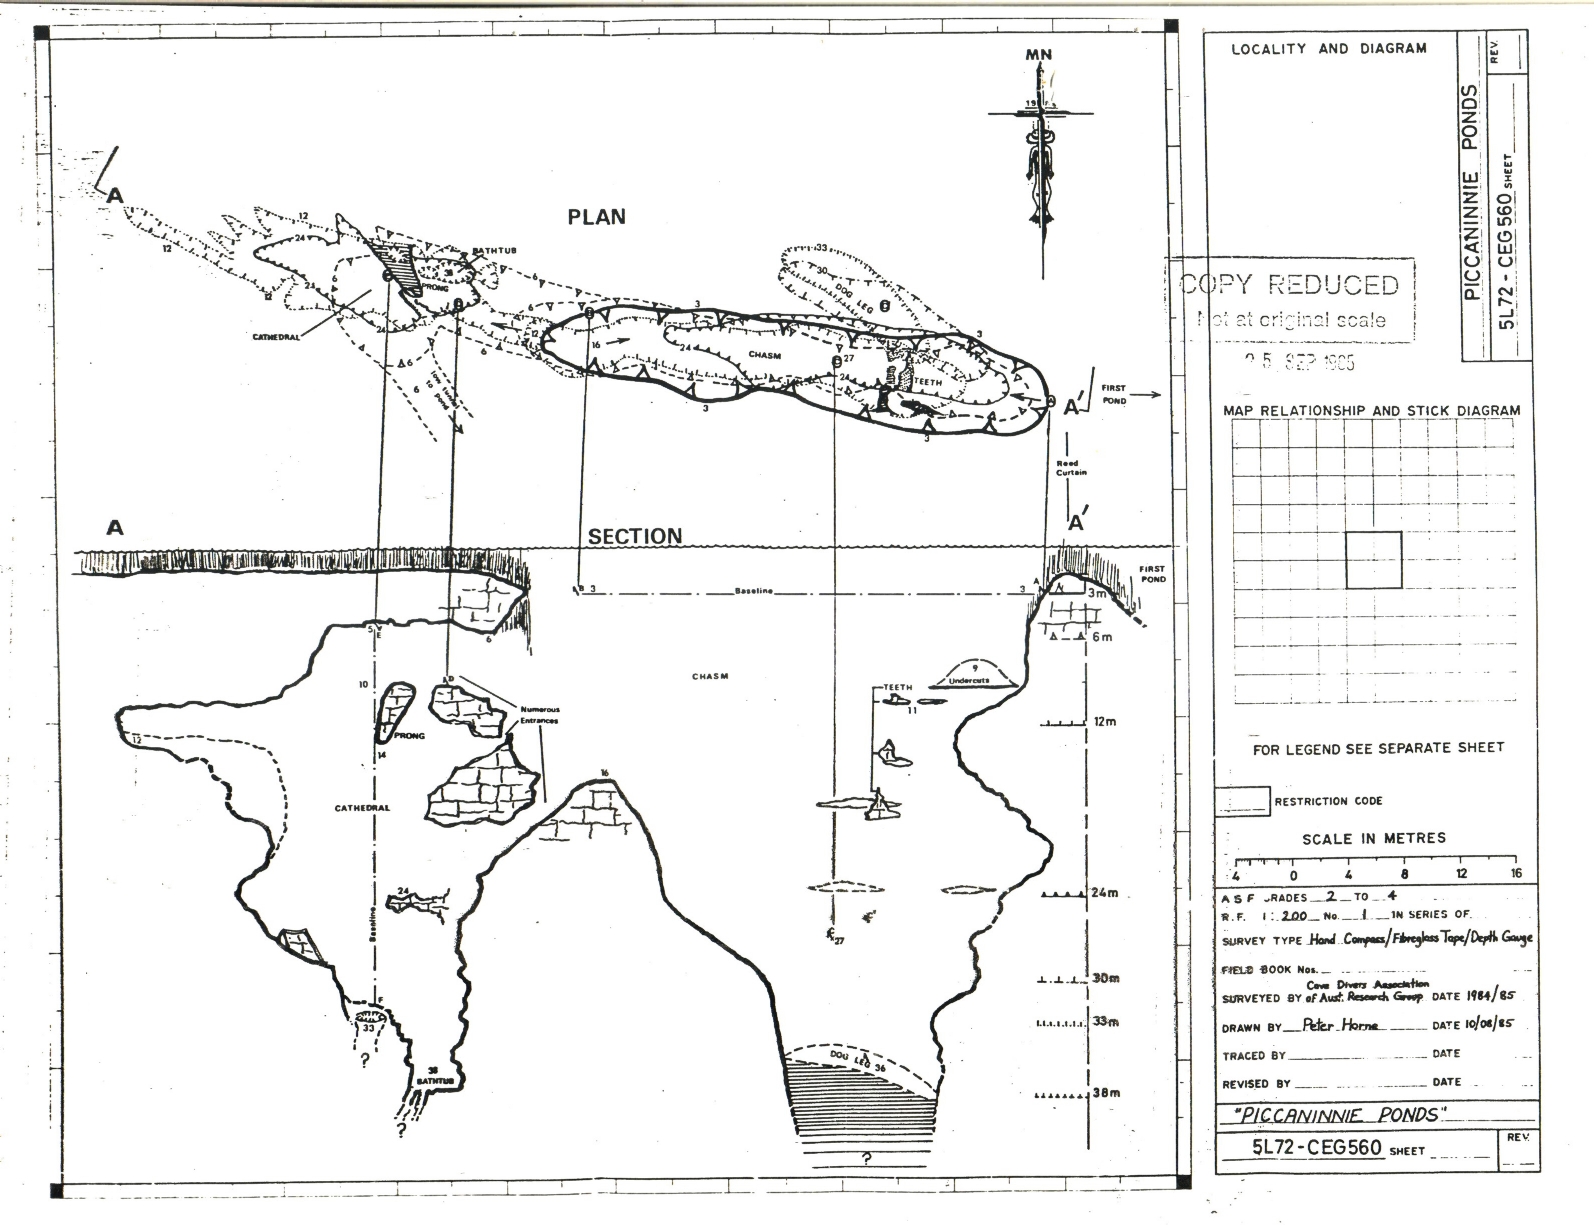 MN
19
A
PLAN
12
12
24
BATHTUB
38
6
6
PRONG
12
24
24
CATHEDRAL
6
6
6
6
33
30
DOG LEG
D
3
12
B
16
24
CHASM
27
24
TEETH
3
3
3
A
A'
FIRST
POND
Reed
Curtain
A
SECTION
A'
FIRST
POND
B 3
Baseline
3
A
3m
6m
5
E
6
CHASM
9
Undercuts
TEETH
11
12m
10
D
PRONG
14
12
Numerous
Entrances
16
CATHEDRAL
24
24m
27
Baseline
30m
F
33
?
33m
38
BATHTUB
?
DOG LEG 36
38m
?
LOCALITY AND DIAGRAM
REV.
PICCANINNIE PONDS
5L72-CEG560 SHEET
COPY REDUCED
Not at original scale
25 SEP 1985
MAP RELATIONSHIP AND STICK DIAGRAM
FOR LEGEND SEE SEPARATE SHEET
RESTRICTION CODE
SCALE IN METRES
4 0 4 8 12 16
A S F GRADES 2 TO 4
R.F. 1:200 No. 1 IN SERIES OF
SURVEY TYPE Hand Compass/Fibreglass Tape/Depth Gauge
FIELD BOOK Nos.
Cave Divers Association
SURVEYED BY of Aust. Research Group DATE 1984/85
DRAWN BY Peter Horne DATE 10/08/85
TRACED BY DATE
REVISED BY DATE
"PICCANINNIE PONDS"
5L72-CEG560 SHEET
REV.